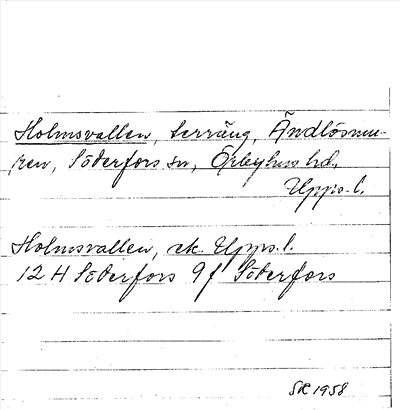 Holmsvallen, terräng, Ändlösmu-
ren, Söderfors sn, Örbyhus hd,
Upps. l.
Holmsvallen, ek. Upps. l.
12 H Söderfors 9f Söderfors
SR 1958